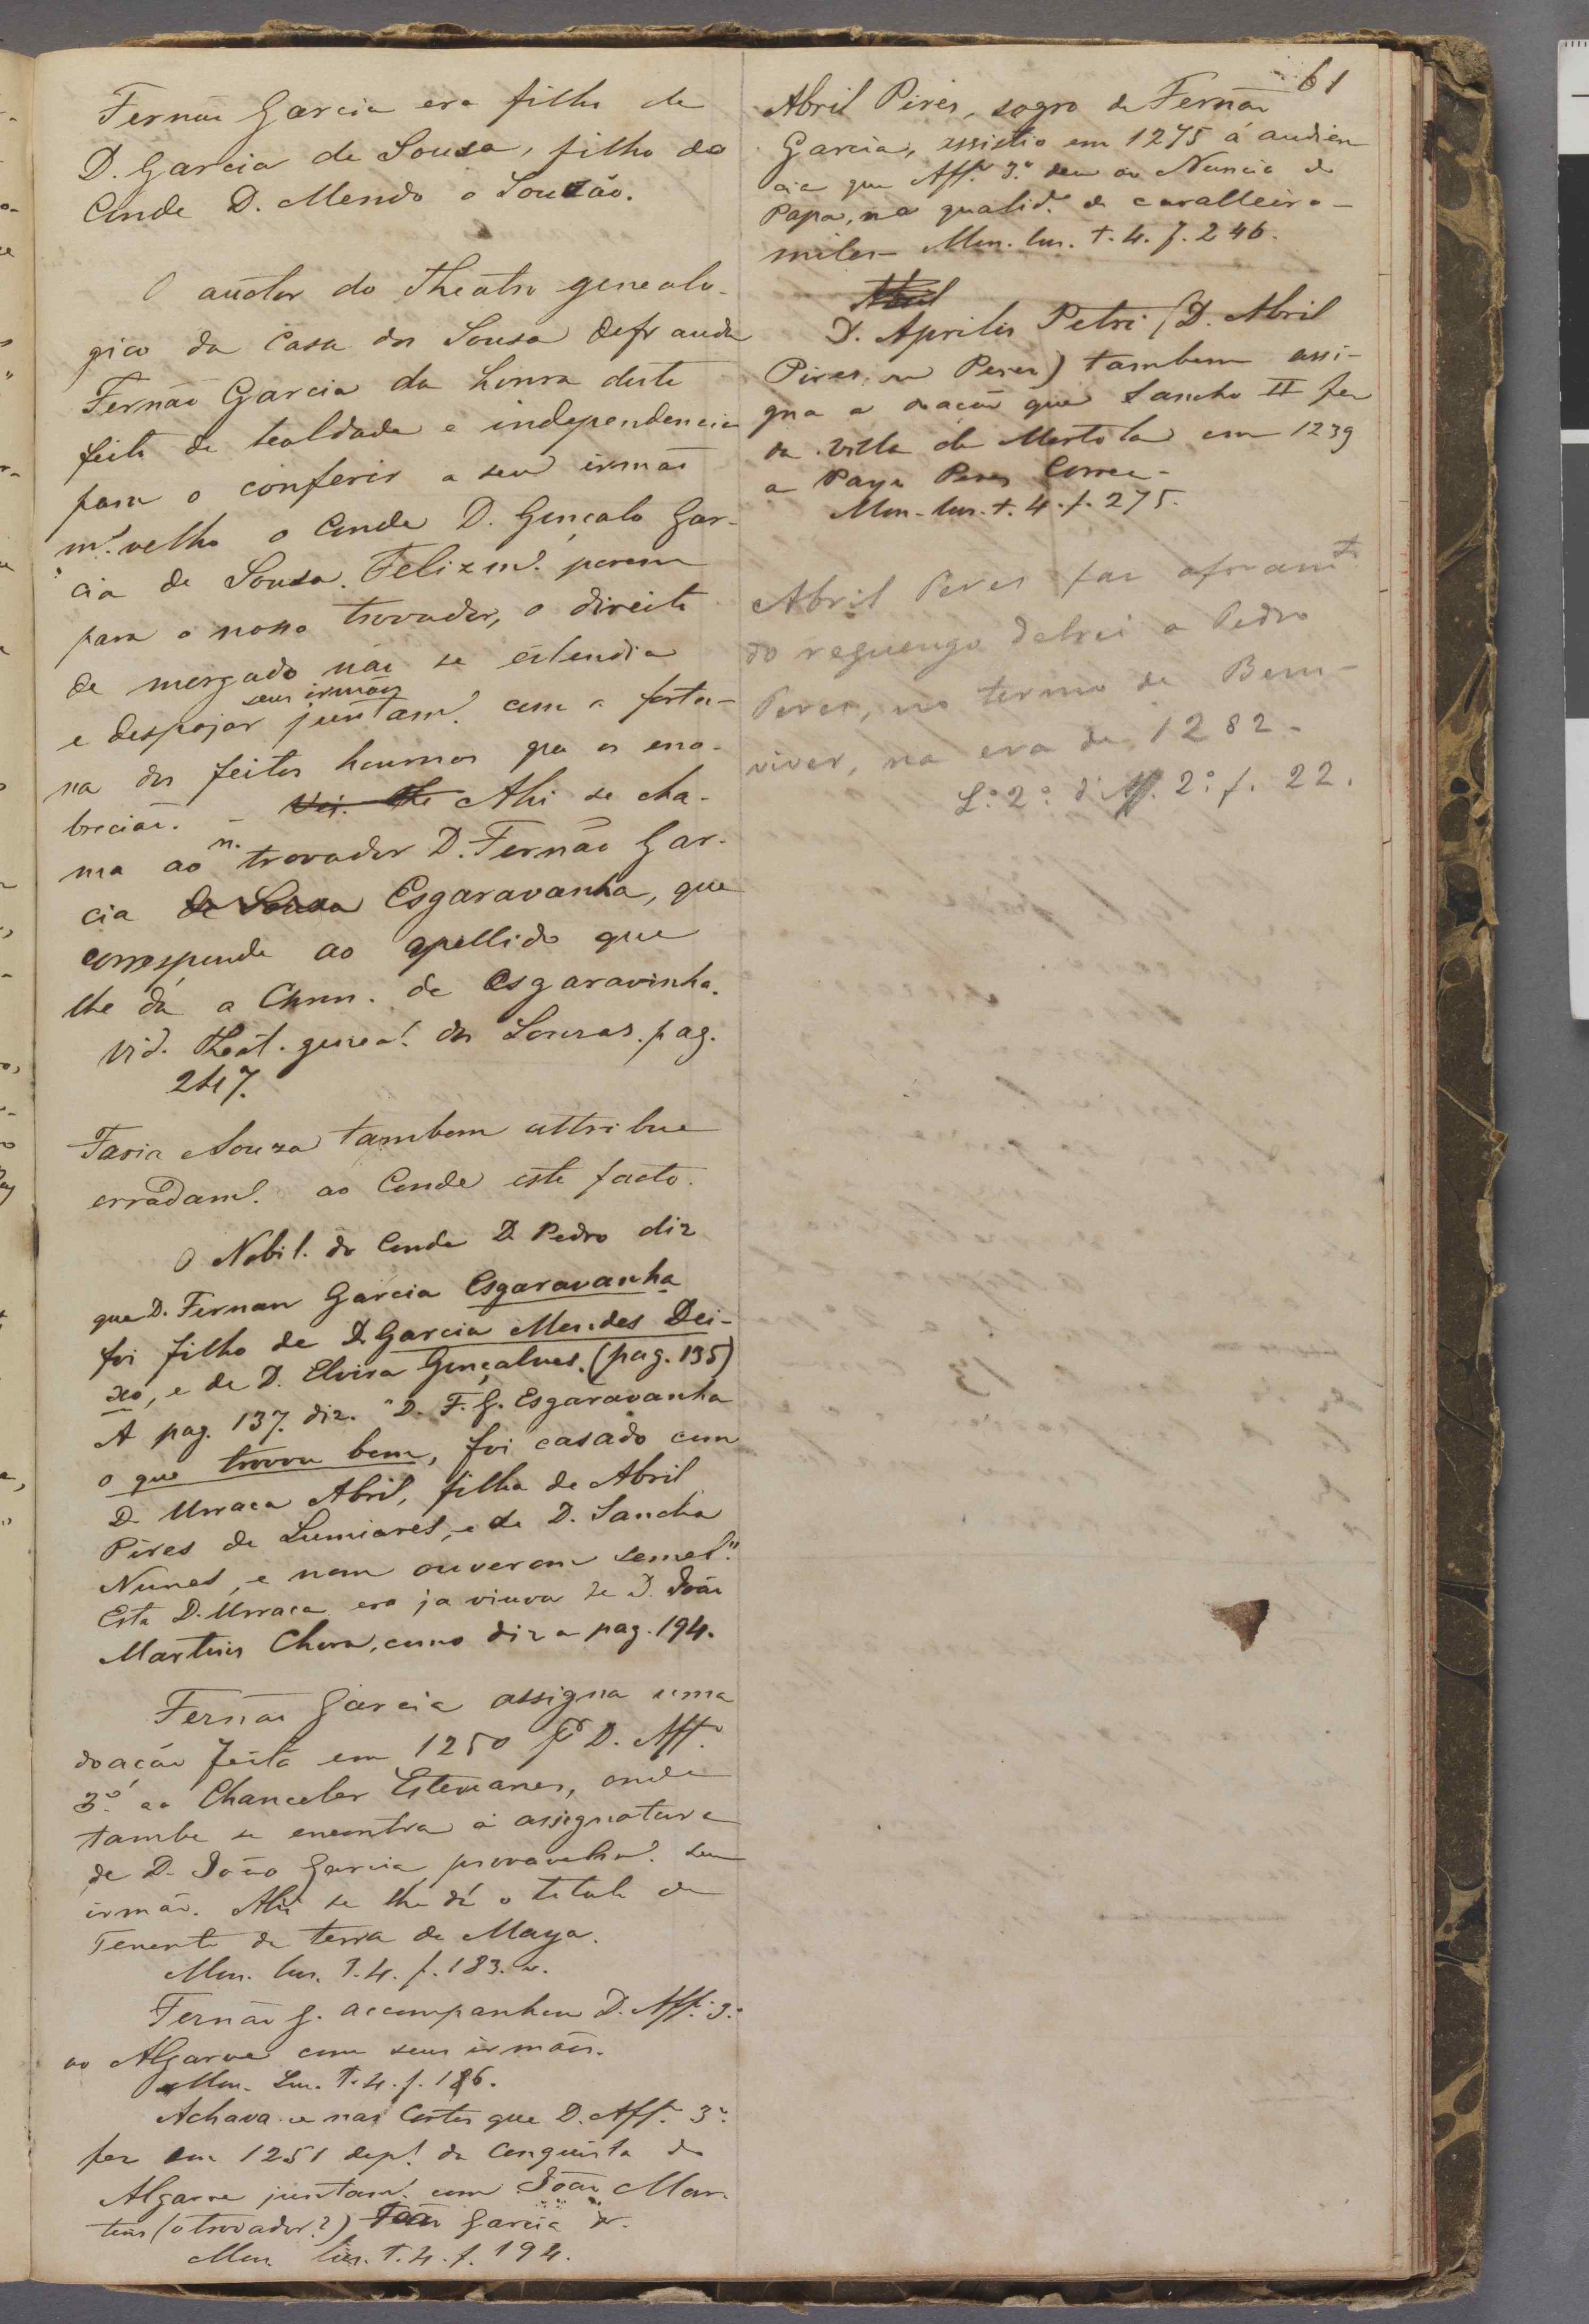 61
Fernão Garcia era filho de
D. Garcia de Sousa, filho do
Conde D. Mendo o Souzão.
O auctor do Theatro genealo-
gico da Casa dos Sousa defrauda
Fernão Garcia da honra deste
feito de lealdade e independencia
para o conferir a seu irmão
m.s velho o Conde D. Gonçalo Gar-
cia de Sousa. Felizm.e porem
para o nosso trovador, o direito
de morgado não se estendia
seus irmãos
e despojar juntam.e com a fortu-
na dos feitos heumos que os eno-
breciam. - Vej. Ahi se cha-
ma ao n. trovador D. Fernão Gar-
cia de Sousa Esgaravanha, que
corresponde ao apellido que
lhe dá a Chron. de Esgaravinha.
Vid. Theat. geneal. dos Souzas. pag.
247.
Faria Souza tambem attribue
erradam.e ao Conde este facto.
O Nobil. do Conde D. Pedro diz
que D. Fernan Garcia Esgaravanha
foi filho de D. Garcia Mendes Dei-
xo, e de D. Elvira Gonçalves. (pag. 135)
A pag. 137. diz. "D. F. G. Esgaravanha
o que trovou bem, foi casado com
D. Urraca Abril, filha de Abril
Pires de Lumiares, e de D. Sancha
Nunes, e nom ouverom semel."
Esta D. Urraca era ja viuva de D. João
Martins Chora, como diz a pag. 194.
Fernão Garcia assigna uma
doação feita em 1250 p.r D. Aff.o
3.o ao Chanceler Estevanes, onde
tambe se encontra a assignatura
de D. João Garcia provavelm.e seu
irmão. Ahi se lhe dá o titulo de
Tenente da terra da Maya.
Mon. lus. T. 4. f. 183. v.
Fernão G. acompanhou D. Aff.o 3.o
ao Algarve com seus irmãos.
Mon. Lus. T. 4. f. 186.
Achava-se nas Cortes que D. Aff.o 3.o
fez em 1251 dep.s da Conquista do
Algarve juntam.e com João Mar-
tins (o trovador?) João Garcia &.
Mon. lus. T. 4. f. 194.
Abril Pires, sogro de Fernão
Garcia, assistio em 1275 á audien
cia que Aff.o 3.o deu ao Nuncio do
Papa, na qualid.e de cavalleiro -
miles - Mon. lus. t. 4. f. 246.
Abril
D. Aprilis Petri (D. Abril
Pires, ou Peres) tambem assi-
gna a doação que Sancho II fez
da villa de Mertola em 1239
a Paya Peres Correa -
Mon. lus. t. 4. f. 275.
Abril Peres faz aforam.to
do reguengo delrei a Pedro
Peres, no termo de Bem-
viver, na era de 1282 -
L.o 2.o d'Aff. 2.o f. 22.